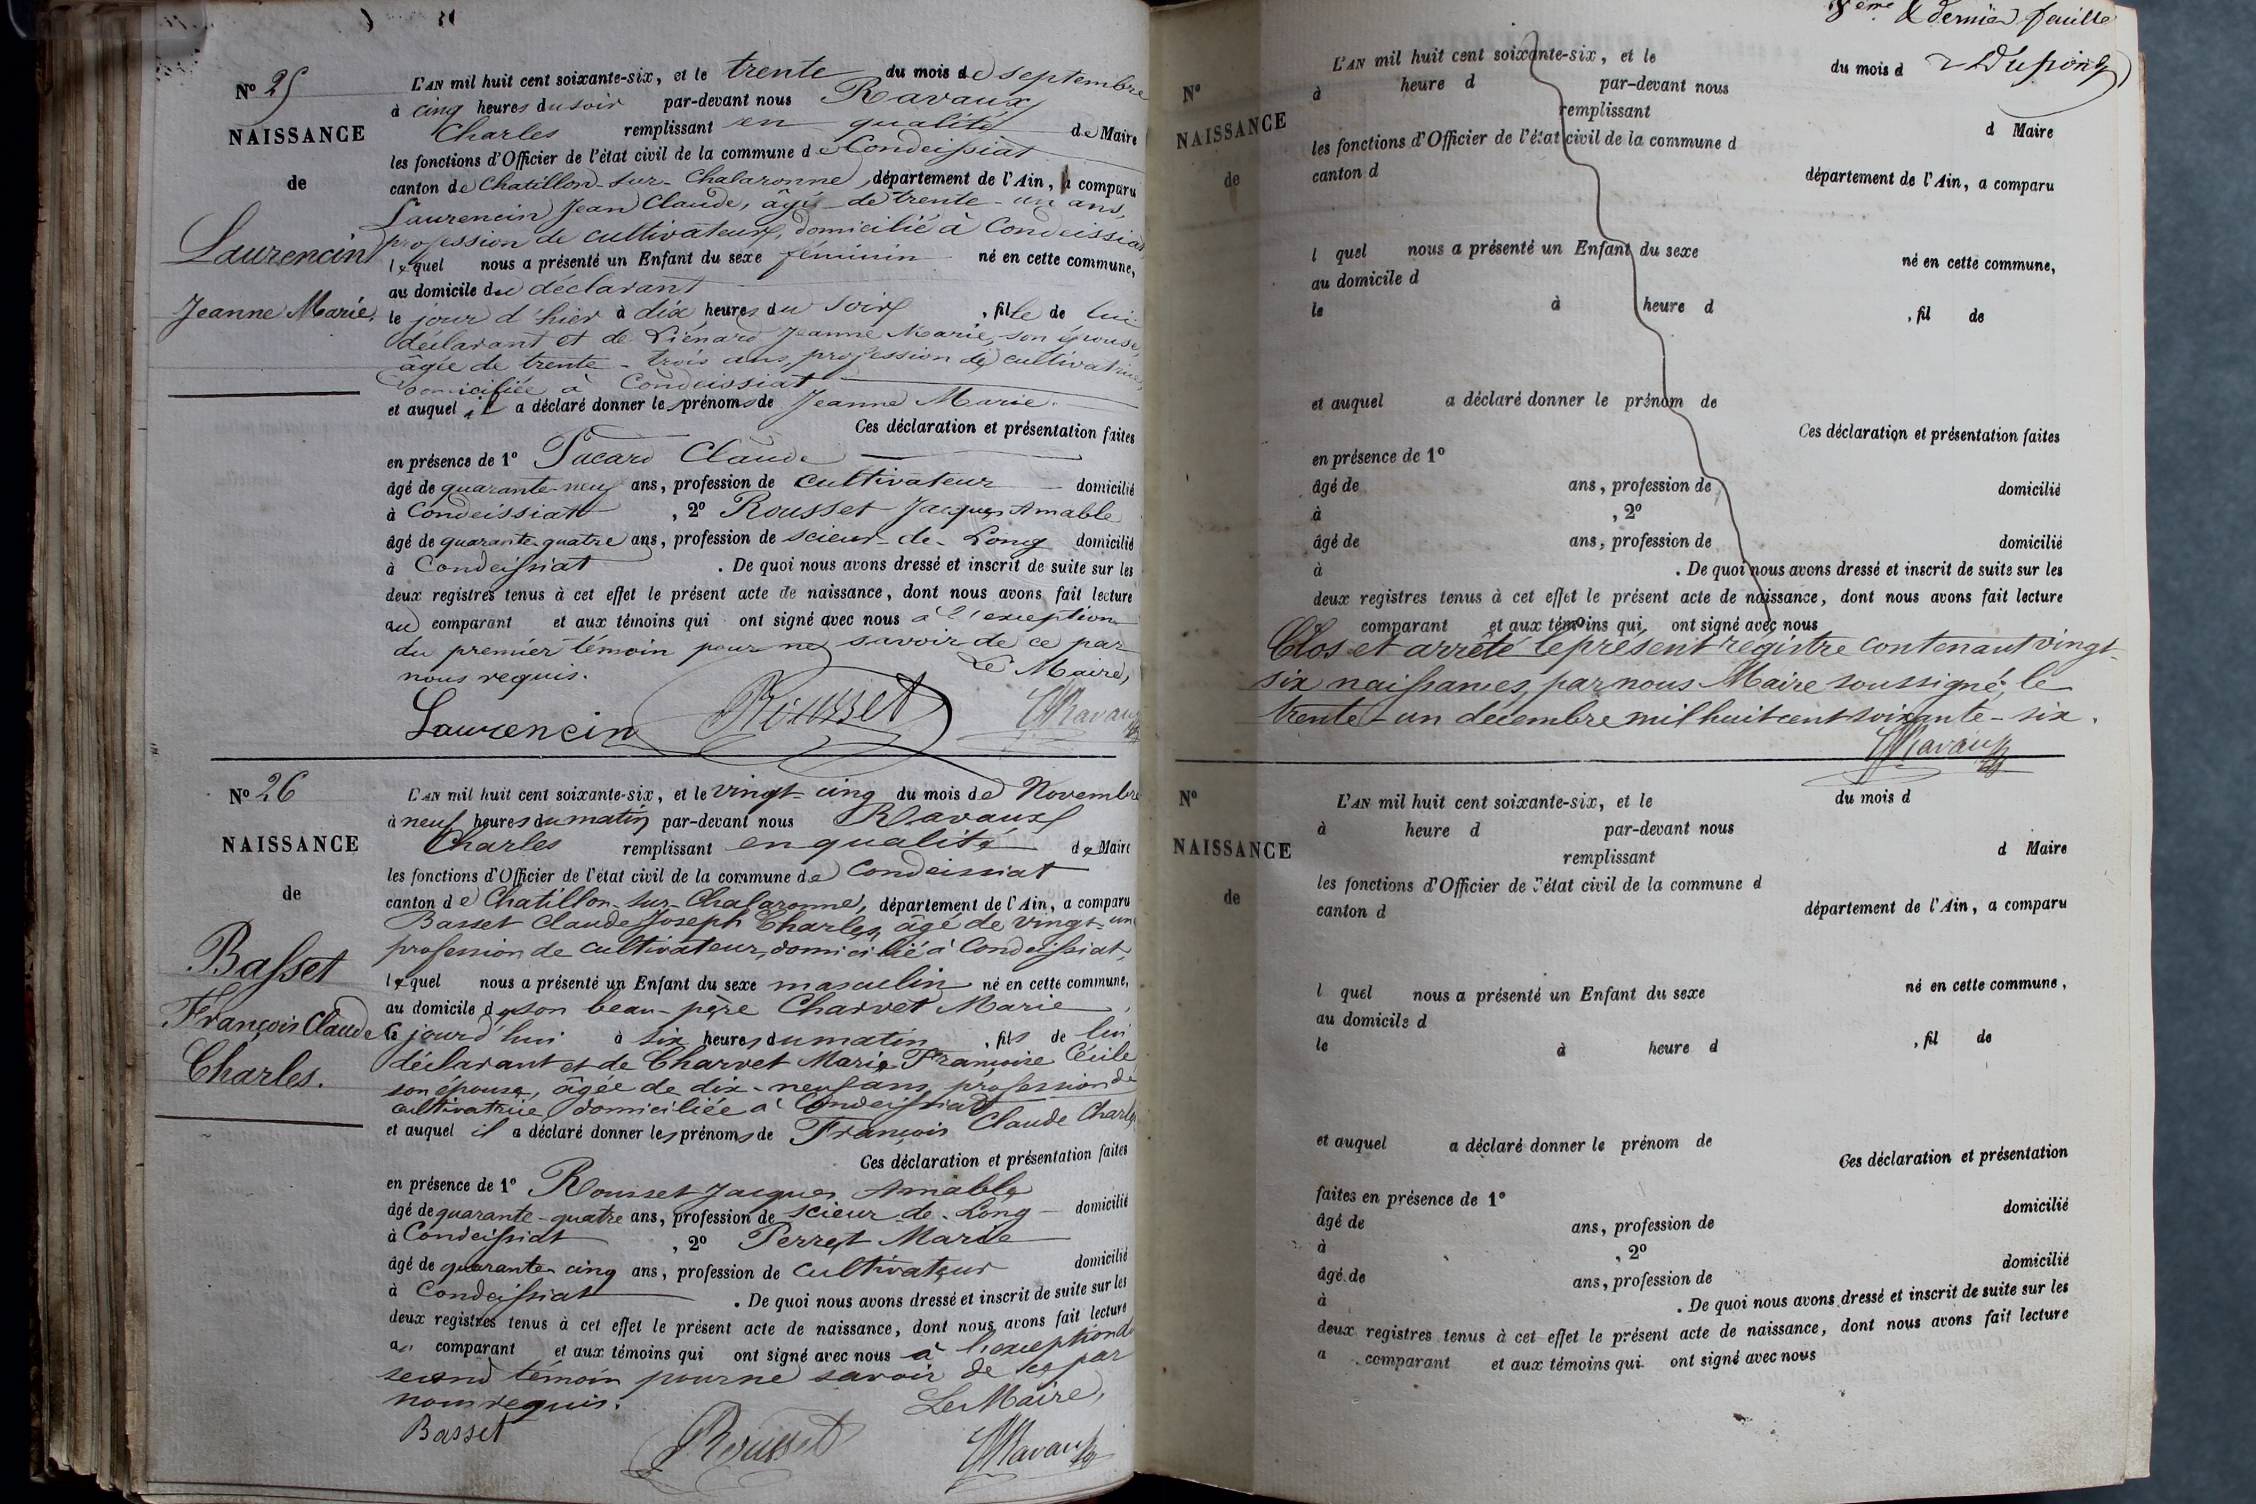 Nº 25
NAISSANCE
de
Laurencin
Jeanne Marie.
L'AN mil huit cent soixante-six, et le trente du mois de septembre
à cinq heures du soir par-devant nous Ravaux
Charles remplissant en qualité de Maire
les fonctions d'Officier de l'état civil de la commune de Condeissiat
canton de Chatillon-sur-Chalaronne, département de l'Ain, a comparu
Laurencin Jean Claude, âgé de trente-un ans,
profession de cultivateur, domicilié à Condeissiat
lequel nous a présenté un Enfant du sexe féminin né en cette commune,
au domicile du déclarant
le jour d'hier à dix heures du soir, fille de lui
déclarant et de Liénard Jeanne Marie, son épouse,
âgée de trente-trois ans, profession de cultivatrice,
domiciliée à Condeissiat
et auquel il a déclaré donner les prénoms de Jeanne Marie.
Ces déclaration et présentation faites
en présence de 1º Pacard Claude
âgé de quarante-neuf ans, profession de cultivateur domicilié
à Condeissiat, 2º Rousset Jacques Amable
âgé de quarante-quatre ans, profession de scieur-de-Long domicilié
à Condeissiat. De quoi nous avons dressé et inscrit de suite sur les
deux registres tenus à cet effet le présent acte de naissance, dont nous avons fait lecture
au comparant et aux témoins qui ont signé avec nous à l'exception
du premier témoin pour ne savoir de ce par
nous requis. Le Maire,
Laurencin Rousset Ravaux
Nº 26
NAISSANCE
de
Basset
François Claude
Charles.
L'AN mil huit cent soixante-six, et le vingt-cinq du mois de Novembre
à neuf heures du matin par-devant nous Ravaux
Charles remplissant en qualité de Maire
les fonctions d'Officier de l'état civil de la commune de Condeissiat
canton de Chatillon-sur-Chalaronne, département de l'Ain, a comparu
Basset Claude Joseph Charles, âgé de vingt-un
profession de cultivateur, domicilié à Condeissiat,
lequel nous a présenté un Enfant du sexe masculin né en cette commune,
au domicile de son beau-père Charvet Marie,
le jourd'hui à six heures du matin, fils de lui
déclarant et de Charvet Marie Françoise Cécile
son épouse, âgée de dix-neuf ans, profession de
cultivatrice domiciliée à Condeissiat
et auquel il a déclaré donner les prénoms de François Claude Charles
Ces déclaration et présentation faites
en présence de 1º Rousset Jacques Amable
âgé de quarante-quatre ans, profession de scieur-de-Long domicilié
à Condeissiat, 2º Perret Marie
âgé de quarante cinq ans, profession de cultivateur domicilié
à Condeissiat. De quoi nous avons dressé et inscrit de suite sur les
deux registres tenus à cet effet le présent acte de naissance, dont nous avons fait lecture
au comparant et aux témoins qui ont signé avec nous à l'exception du
second témoin pour ne savoir de ce par
nous requis. Le Maire,
Basset Rousset Ravaux
8ème & dernier feuille
Dupong
Nº
NAISSANCE
de
L'AN mil huit cent soixante-six, et le du mois d
à heure d par-devant nous
remplissant d Maire
les fonctions d'Officier de l'état civil de la commune d
canton d département de l'Ain, a comparu
l quel nous a présenté un Enfant du sexe né en cette commune,
au domicile d
le à heure d , fil de
et auquel a déclaré donner le prénom de
Ces déclaration et présentation faites
en présence de 1º
âgé de ans, profession de domicilié
à , 2º
âgé de ans, profession de domicilié
à . De quoi nous avons dressé et inscrit de suite sur les
deux registres tenus à cet effet le présent acte de naissance, dont nous avons fait lecture
a comparant et aux témoins qui ont signé avec nous
Clos et arrêté le présent registre contenant vingt-
six naissances, par nous Maire soussigné, le
trente-un décembre mil huit cent soixante-six.
Ravaux
Nº
NAISSANCE
de
L'AN mil huit cent soixante-six, et le du mois d
à heure d par-devant nous
remplissant d Maire
les fonctions d'Officier de l'état civil de la commune d
canton d département de l'Ain, a comparu
l quel nous a présenté un Enfant du sexe né en cette commune,
au domicile d
le à heure d , fil de
et auquel a déclaré donner le prénom de
Ces déclaration et présentation
faites en présence de 1º
âgé de ans, profession de domicilié
à , 2º
âgé de ans, profession de domicilié
à . De quoi nous avons dressé et inscrit de suite sur les
deux registres tenus à cet effet le présent acte de naissance, dont nous avons fait lecture
a comparant et aux témoins qui ont signé avec nous